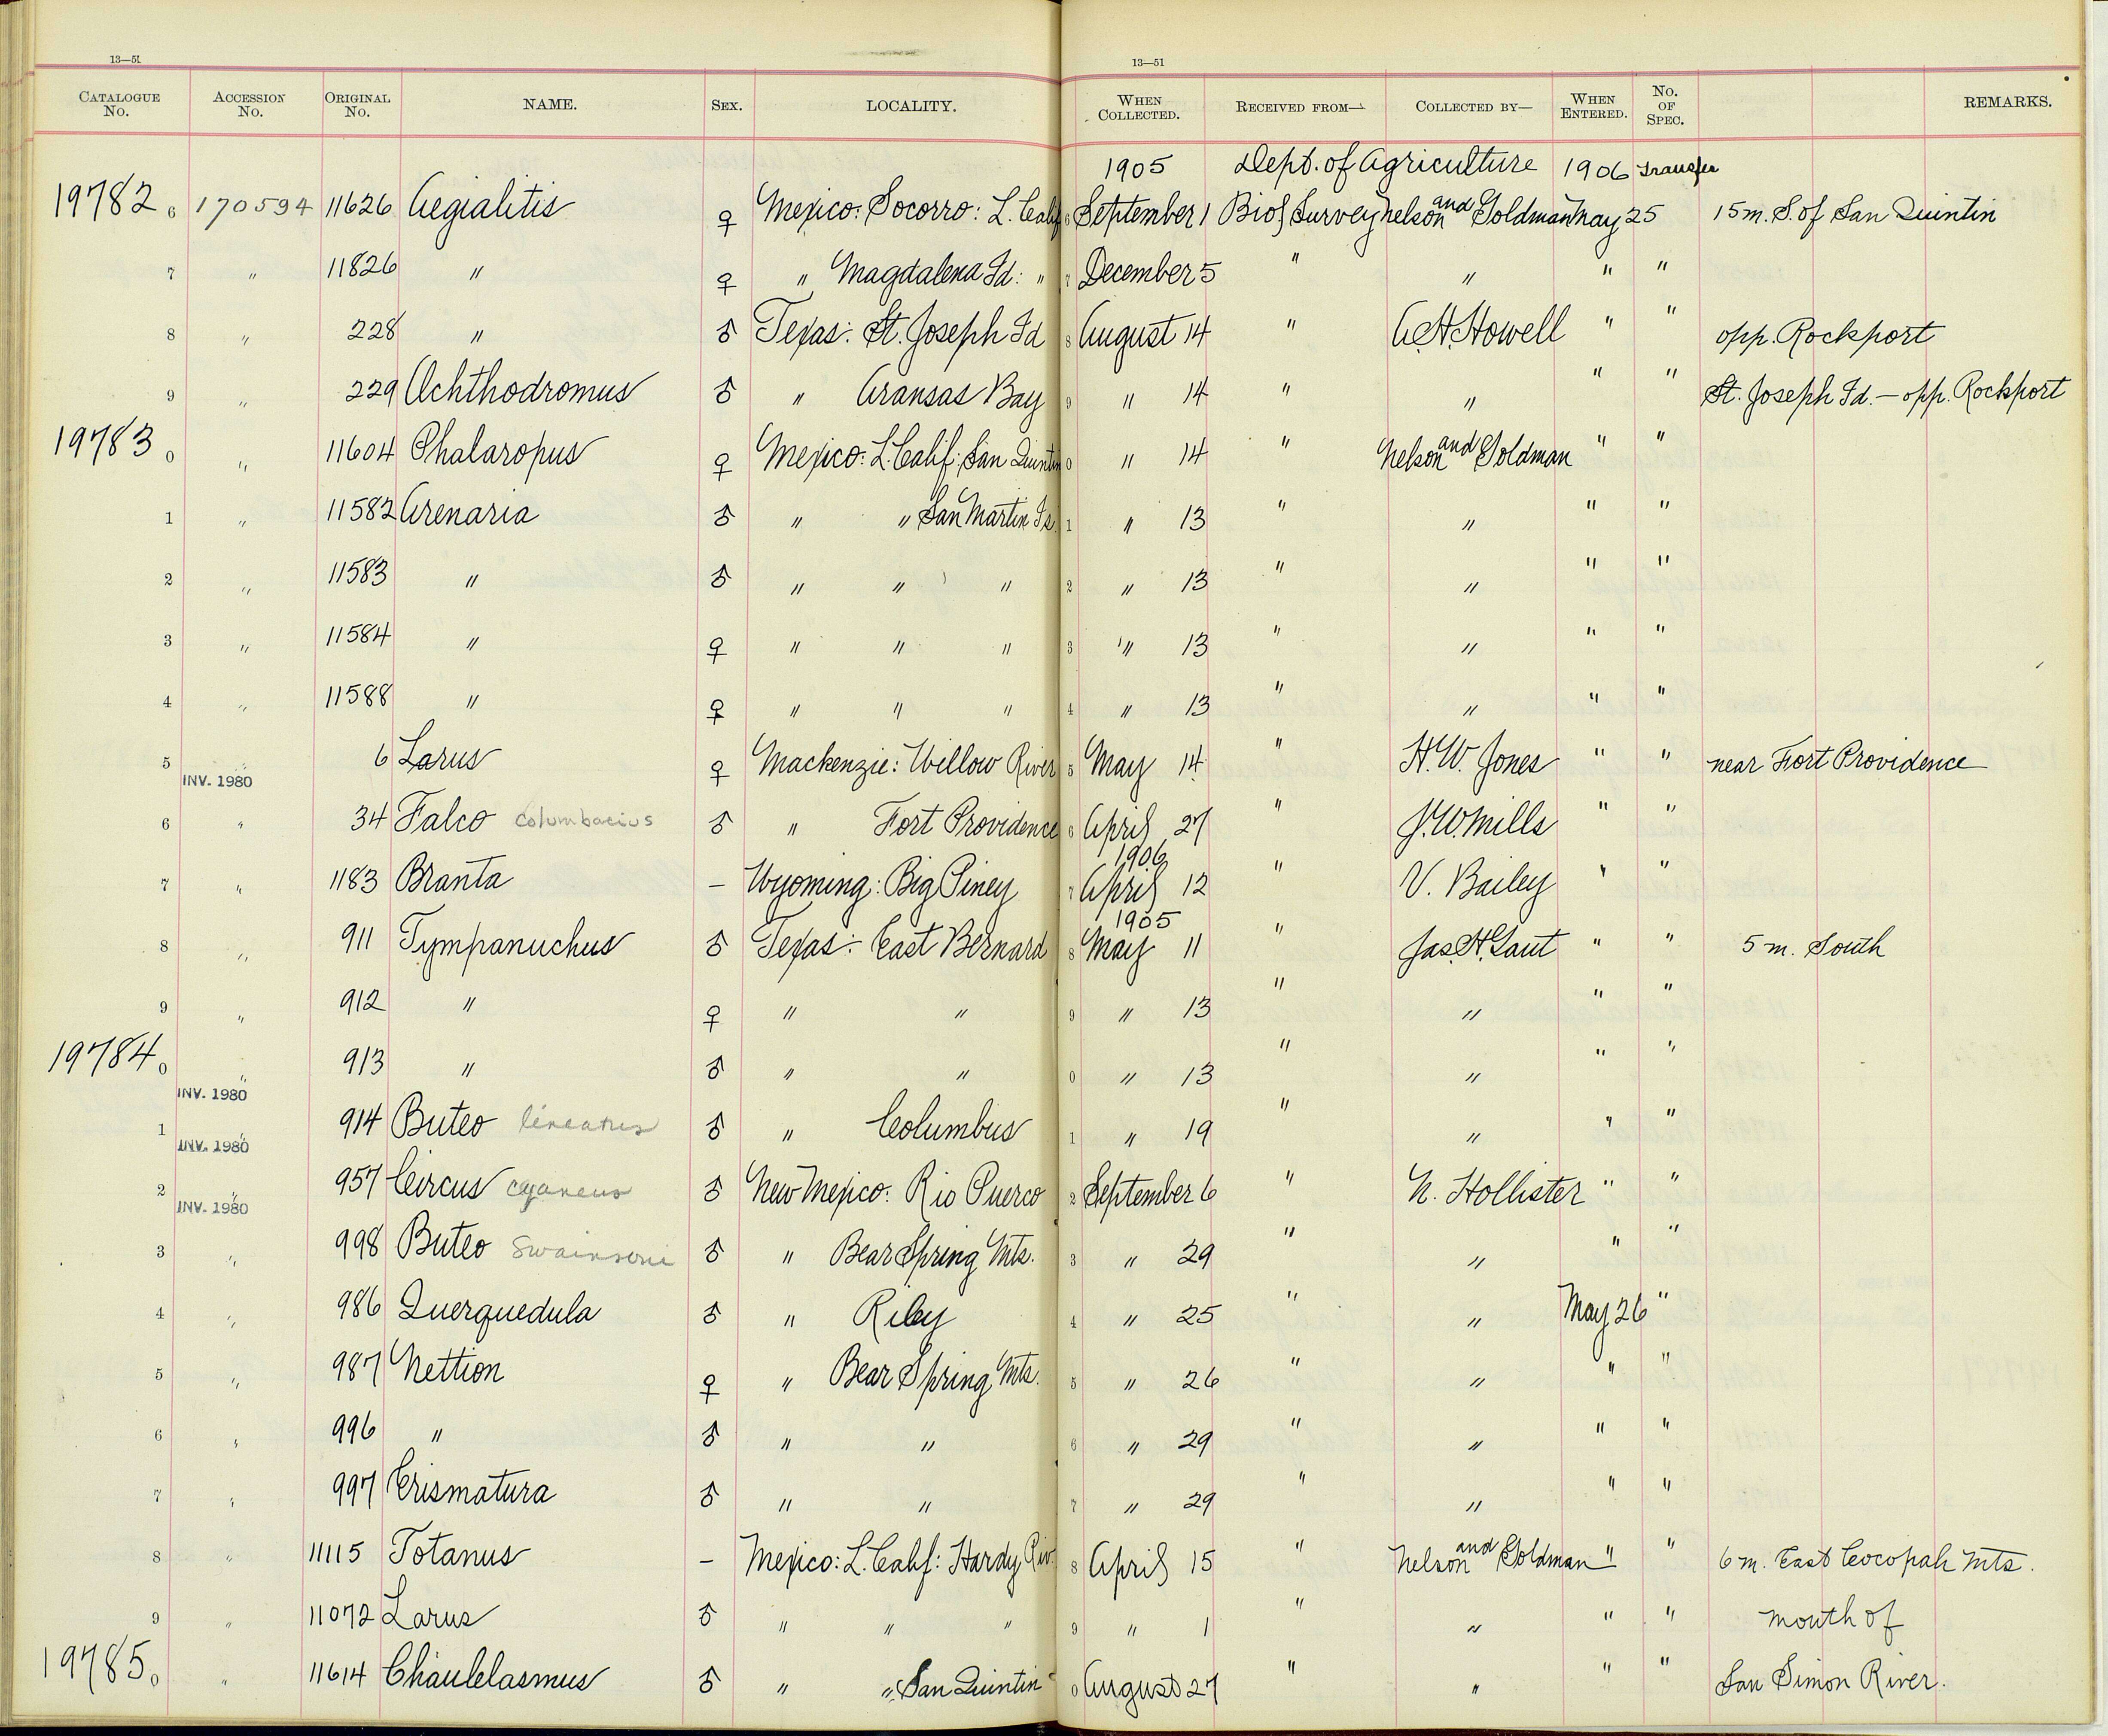 13—51 13—51
CATALOGUE No. ACCESSION No. ORIGINAL No. NAME. SEX. LOCALITY. WHEN COLLECTED. RECEIVED FROM— COLLECTED BY— WHEN ENTERED. No. OF SPEC. REMARKS.
1905 Dept. of Agriculture 1906 Transfer
19782 6 170594 11626 Aegialitis ♀ Mexico: Socorro: L. Calif 6 September 1 Biol Survey Nelson and Goldman May 25 15 m. S. of San Quintin
7 " 11826 " ♀ " Magdalena Id: " 7 December 5 " " " "
8 " 228 " ♂ Texas: St. Joseph Id 8 August 14 " A.H. Howell " " opp. Rockport
9 " 229 Ochthodromus ♂ " Aransas Bay 9 " 14 " " " " St. Joseph Id. — opp. Rockport
19783 0 " 11604 Phalaropus ♀ Mexico: L. Calif: San Quintin 0 " 14 " Nelson and Goldman " "
1 " 11582 Arenaria ♂ " " San Martin Is 1 " 13 " " " "
2 " 11583 " ♂ " " " 2 " 13 " " " "
3 " 11584 " ♀ " " " 3 " 13 " " " "
4 " 11588 " ♀ " " " 4 " 13 " " " "
5 " INV. 1980 6 Larus ♀ Mackenzie: Willow River 5 May 14 " H.W. Jones " " near Fort Providence
6 " 34 Falco columbarius ♂ " Fort Providence 6 April 27 " J.W. Mills " "
1906
7 " 1183 Branta — Wyoming: Big Piney 7 April 12 " V. Bailey " "
1905
8 " 911 Tympanuchus ♂ Texas: East Bernard 8 May 11 " Jas. H. Gaut " " 5 m. South
9 " 912 " ♀ " " 9 " 13 " " " "
19784 0 " INV. 1980 913 " ♂ " " 0 " 13 " " " "
1 " INV. 1980 914 Buteo lineatus ♂ " Columbus 1 " 19 " " " "
2 " INV. 1980 957 Circus cyaneus ♂ New Mexico: Rio Puerco 2 September 6 " N. Hollister " "
3 " 998 Buteo Swainsoni ♂ " Bear Spring Mts. 3 " 29 " " " "
4 " 986 Querquedula ♂ " Riley 4 " 25 " " May 26 "
5 " 987 Nettion ♀ " Bear Spring Mts. 5 " 26 " " " "
6 " 996 " ♂ " " 6 " 29 " " " "
7 " 997 Erismatura ♂ " " 7 " 29 " " " "
8 " 11115 Totanus — Mexico: L. Calif: Hardy Riv. 8 April 15 " Nelson and Goldman " " 6 m. East Cocopah Mts.
9 " 11072 Larus ♂ " " " 9 " 1 " " " " mouth of
19785 0 " 11614 Chaulelasmus ♂ " " San Quintin 0 August 27 " " " " San Simon River.